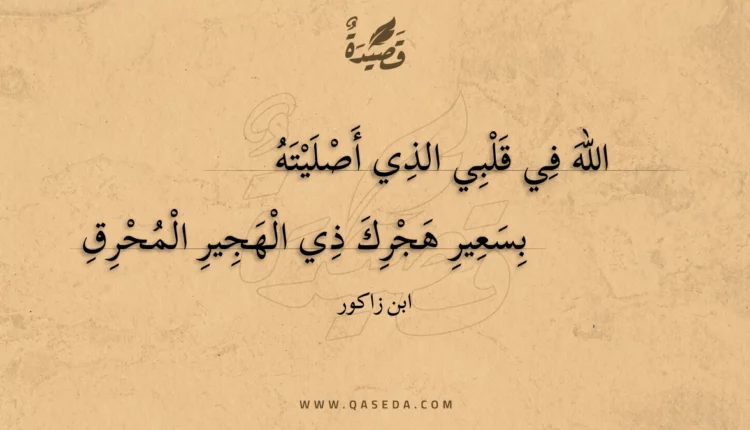 قَصِيْدَةٌ
اللهَ فِي قَلْبِي الذِي أَصْلَيْتَهُ
بِسَعِيرِ هَجْرِكَ ذِي الْهَجِيرِ الْمُحْرِقِ
ابن زاكور
WWW.QASEDA.COM